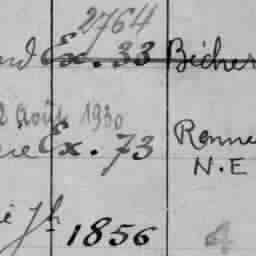 2764
Ex. 33 Bicher
2 Août 1930
Ex. 73 Renne
N.E
1856 4